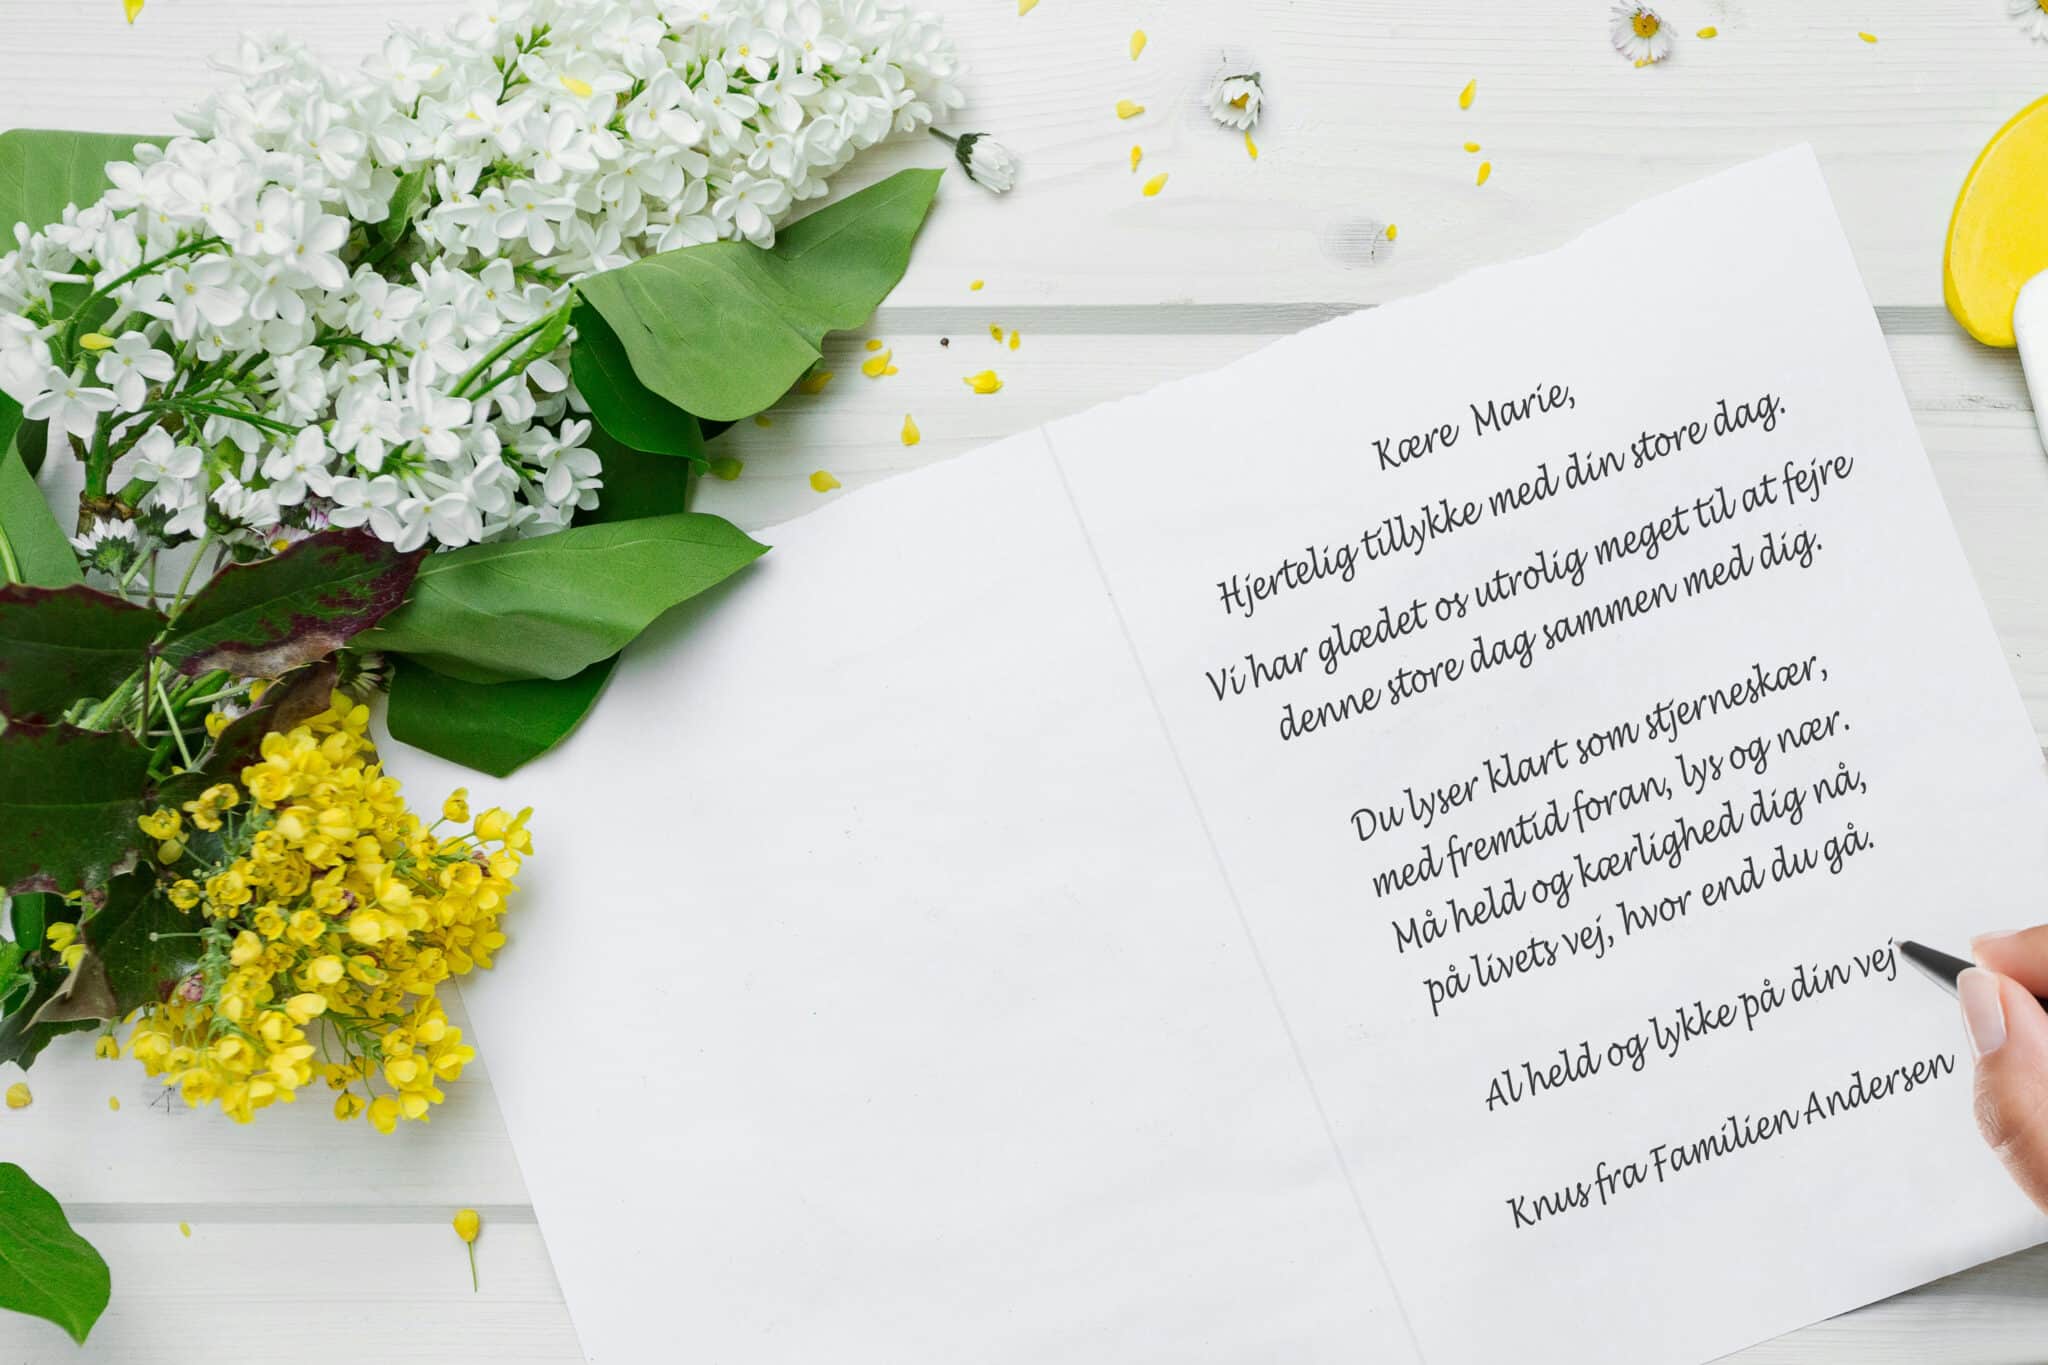 Kære Marie,
Hjertelig tillykke med din store dag.
Vi har glædet os utrolig meget til at fejre
denne store dag sammen med dig.
Du lyser klart som stjerneskær,
med fremtid foran, lys og nær.
Må held og kærlighed dig nå,
på livets vej, hvor end du gå.
Al held og lykke på din vej
Knus fra Familien Andersen